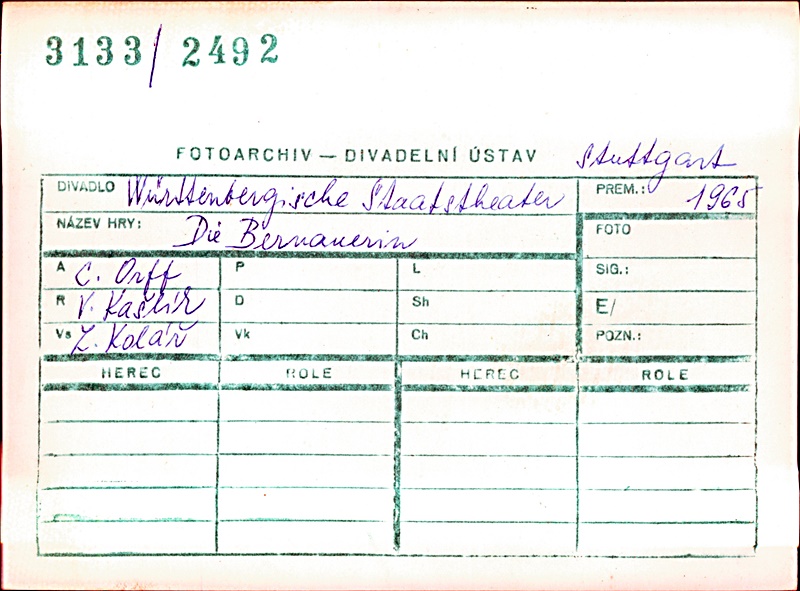 3133/ 2492
FOTOARCHIV — DIVADELNÍ ÚSTAV Stuttgart
DIVADLO Württenbergische Staatstheater PREM.: 1965
NÁZEV HRY: Die Bernauerin FOTO
A C. Orff P L SIG.:
R V. Kašlík D Sh E/
Vs Z. Kolář Vk Ch POZN.:
HEREC ROLE HEREC ROLE